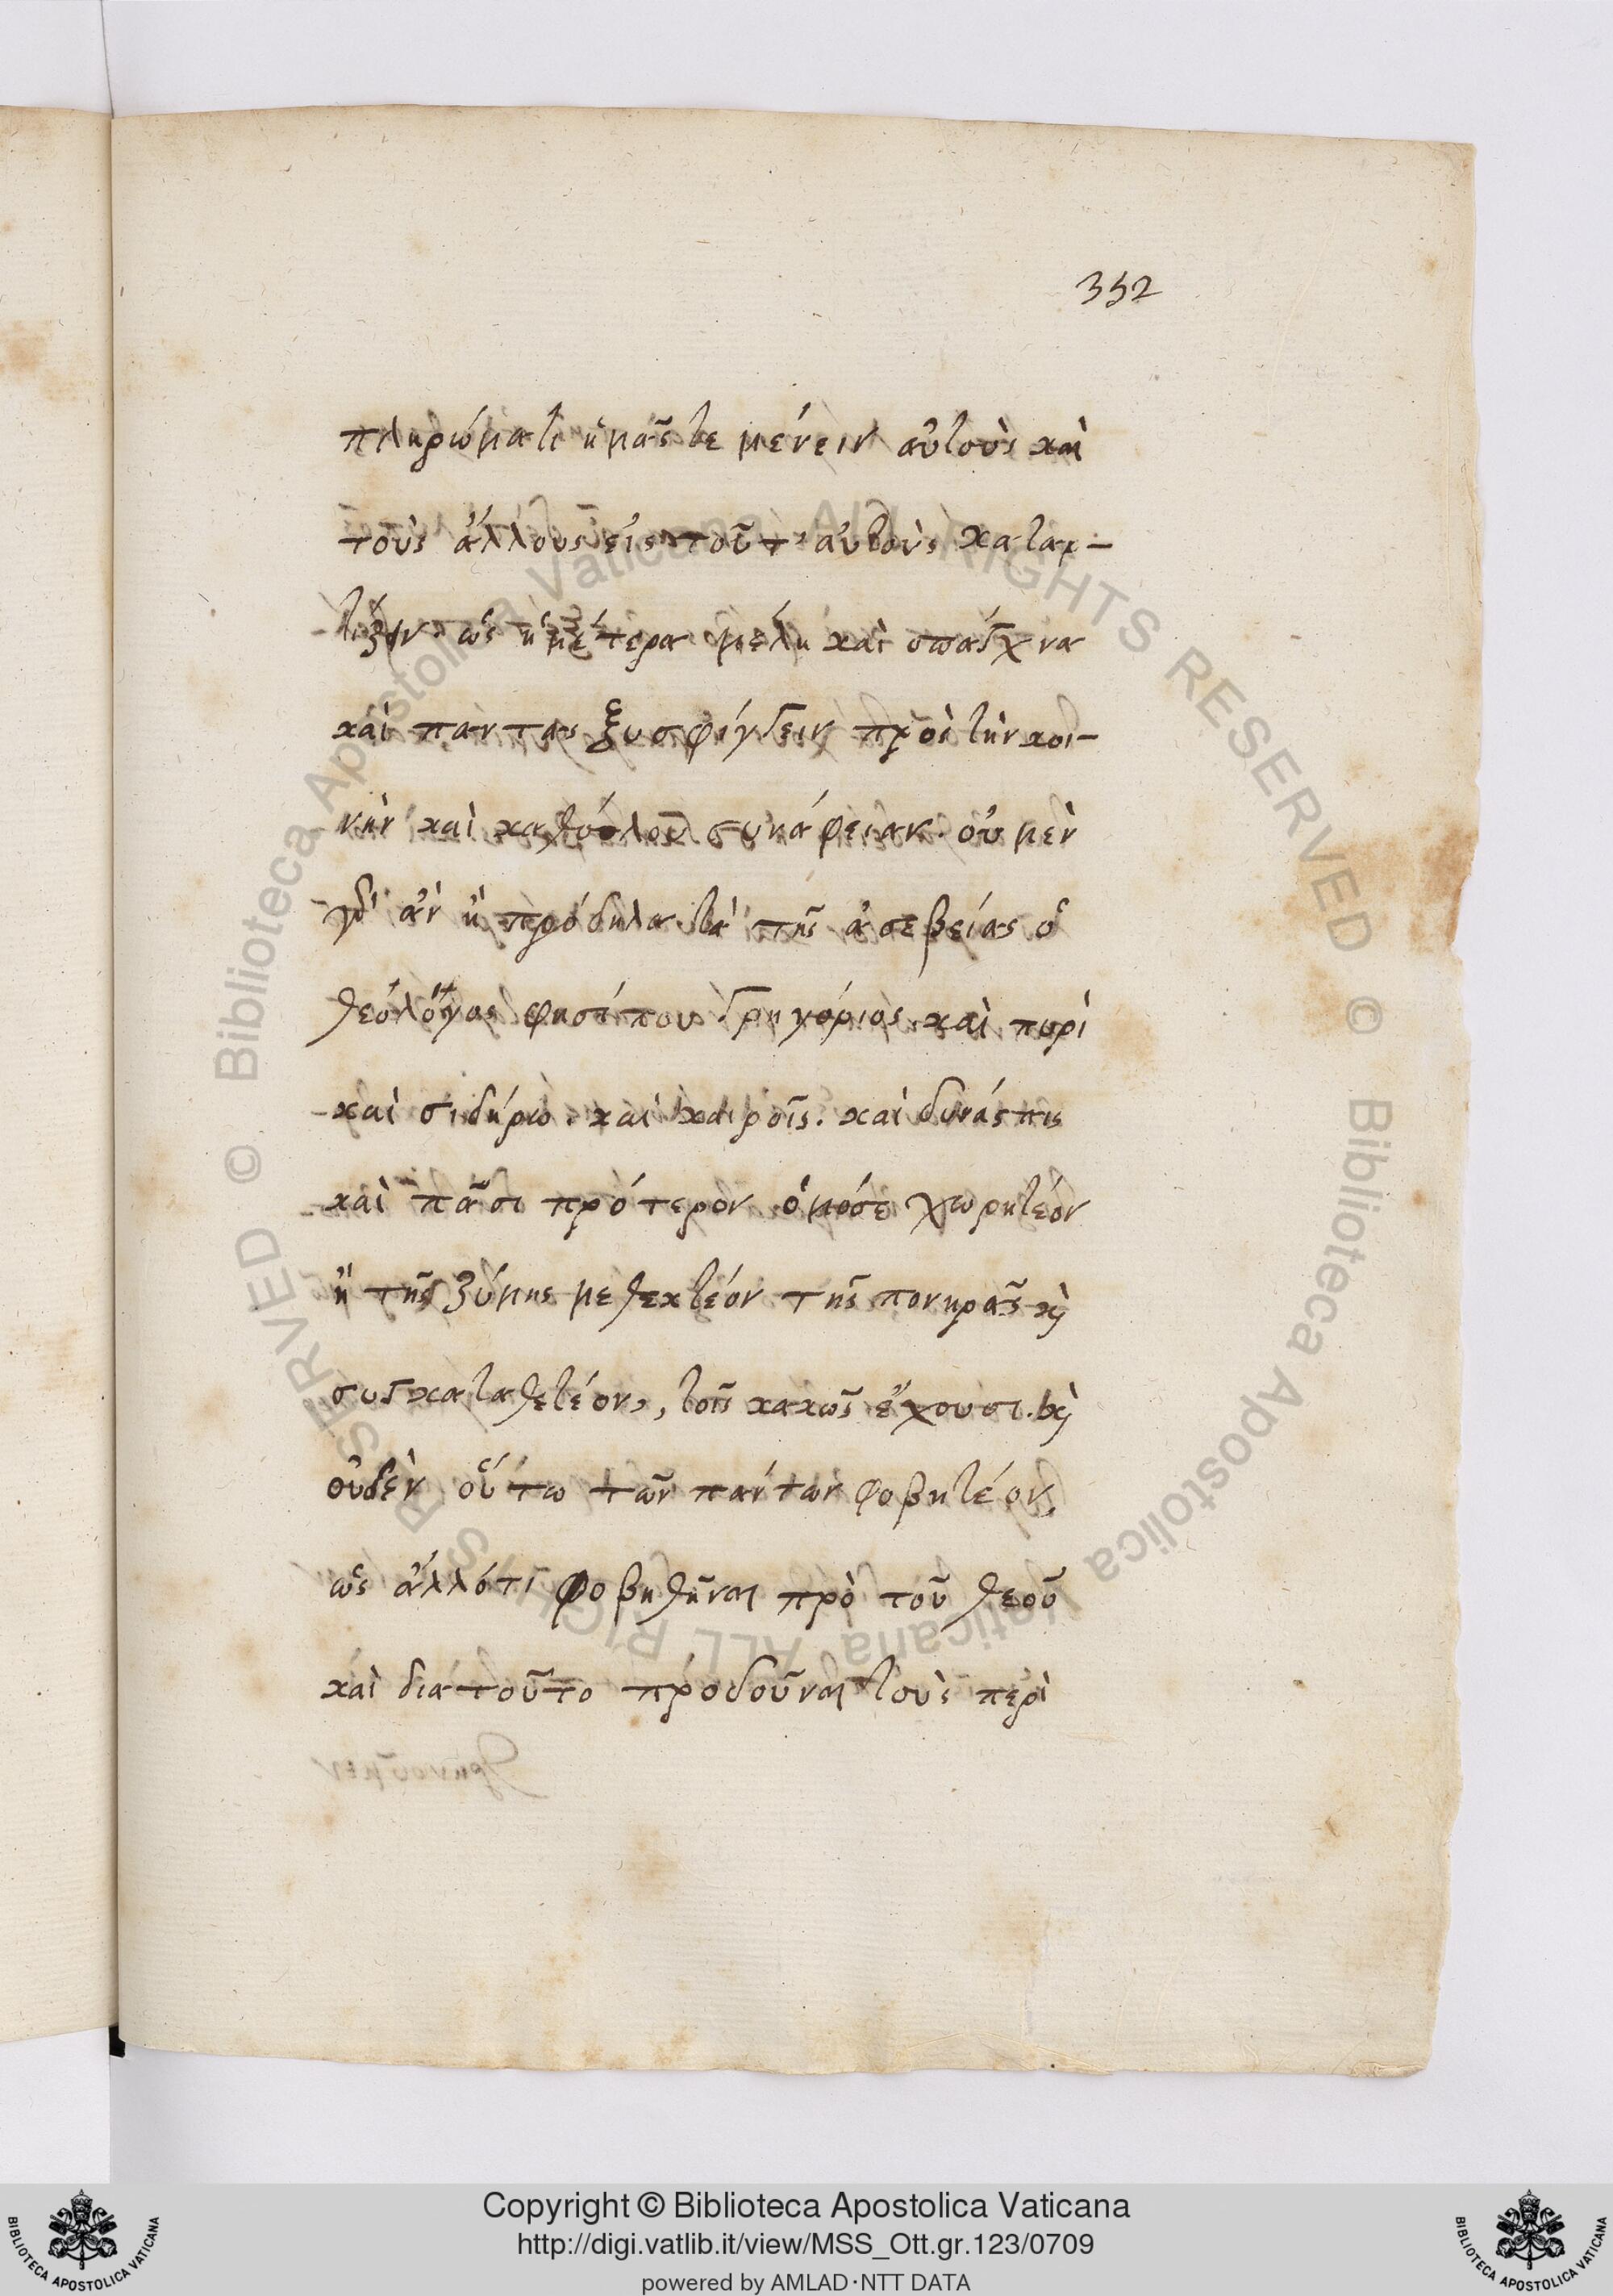 352
πληρώματι ἡμᾶς τε μένειν αὐτοὺς καὶ
τοὺς ἄλλους εἰς τοῦτ' αὐτοὺς καταρ-
τίζειν. ὡς ἡμέτερα μέλη καὶ σπλάγχνα
καὶ πάντας ξυσφίγγειν πρὸς τὴν κοι-
νὴν καὶ καθόλου συνάφειαν. οὐ μὲν
γὰρ ἂν ᾖ πρόδηλα τὰ τῆς ἀσεβείας ὁ
θεολόγος φησί που Γρηγόριος. καὶ πυρὶ
καὶ σιδήρω. καὶ καιροῖς. καὶ δυνάσταις
καὶ πᾶσι πρότερον ὁμόσε χωρητέον
ἢ τῆς ζύμης μεθεκτέον τῆς πονηρᾶς καὶ
συγκαταθετέον, τοῖς κακῶς ἔχουσι. καὶ
οὐδὲν οὕτω τῶν πάντων φοβητέον,
ὡς ἄλλό τι φοβηθῆναι πρὸ τοῦ θεοῦ
καὶ διὰ τοῦτο προδοῦναι τοὺς περὶ
© Biblioteca Apostolica Vaticana ALL RIGHTS RESERVED © Biblioteca Apostolica Vaticana ALL RIGHTS RESERVED
Copyright © Biblioteca Apostolica Vaticana
http://digi.vatlib.it/view/MSS_Ott.gr.123/0709
powered by AMLAD·NTT DATA
BIBLIOTECA APOSTOLICA VATICANA
BIBLIOTECA APOSTOLICA VATICANA